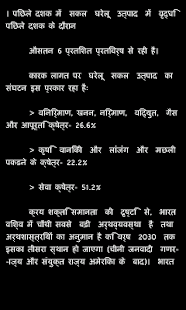 । पिछले दशक में सकल घरेलू उत्पाद में वृद्धि
पिछले दशक के दौरान
औसतन 6 प्रतिशत प्रतिवर्ष से रही है।
कारक लागत पर घरेलू सकल उत्पाद का
संघटन इस प्रकार रहा है:
> विनिर्माण, खनन, निर्माण, विद्युत, गैस
और आपूर्ति क्षेत्र- 26.6%
> कृषि वानिकी और सांजंग और मछली
पकडने के क्षेत्र- 22.2%
> सेवा क्षेत्र- 51.2%
क्रय शक्ति समानता की दृष्टि से, भारत
विश्व में चौथी सबसे बड़ी अर्थव्यवस्था है तथा
अर्थशास्त्रियों का अनुमान है कि वर्ष 2030 तक
इसका तीसरा स्थान हो जाएगा (चीनी जनवादी गणर-
-ज्य और संयुक्त राज्य अमेरिका के बाद)। भारत